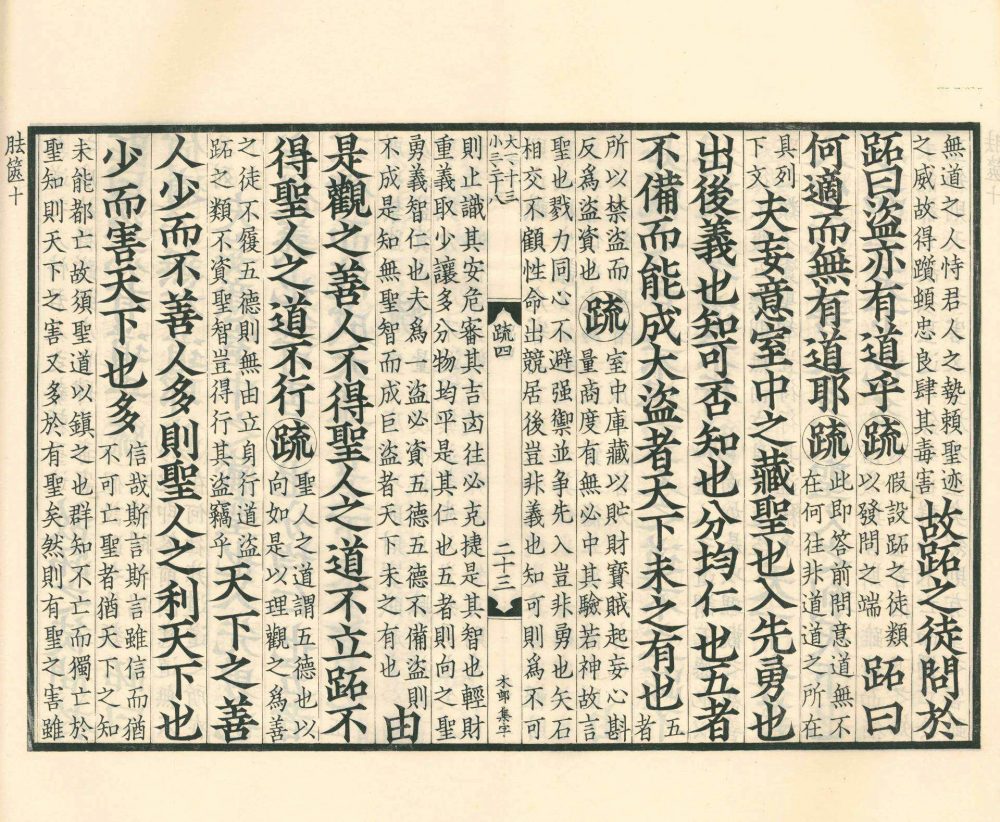 無道之人恃君人之勢賴聖迹
之威故得躓頓忠良肆其毒害
故跖之徒問於
跖曰盜亦有道乎疏
假設跖之徒類
以發問之端
跖曰
何適而無有道耶疏
此即答前問意道無不
在何往非道道之所在
具列
下文
夫妄意室中之藏聖也入先勇也
出後義也知可否知也分均仁也五者
不備而能成大盜者天下未之有也
五
者
所以禁盜而
反爲盜資也
疏
室中庫藏以貯財寶賊起妄心斟
量商度有無必中其驗若神故言
聖也戮力同心不避强禦並争先入豈非勇也矢石
相交不顧性命出競居後豈非義也知可則爲不可
疏四
二十三
木邨集字
則止識其安危審其吉凶往必克捷是其智也輕財
重義取少讓多分物均平是其仁也五者則向之聖
勇義智仁也夫爲一盜必資五德五德不備盜則
不成是知無聖智而成巨盜者天下未之有也
由
是觀之善人不得聖人之道不立跖不
得聖人之道不行疏
聖人之道謂五德也以
向如是以理觀之爲善
之徒不履五德則無由立身行道盜
跖之類不資聖智豈得行其盜竊乎
天下之善
人少而不善人多則聖人之利天下也
少而害天下也多
信哉斯言斯言雖信而猶
不可亡聖者猶天下之知
未能都亡故須聖道以鎮之也群知不亡而獨亡於
聖知則天下之害又多於有聖矣然則有聖之害雖
胠篋十